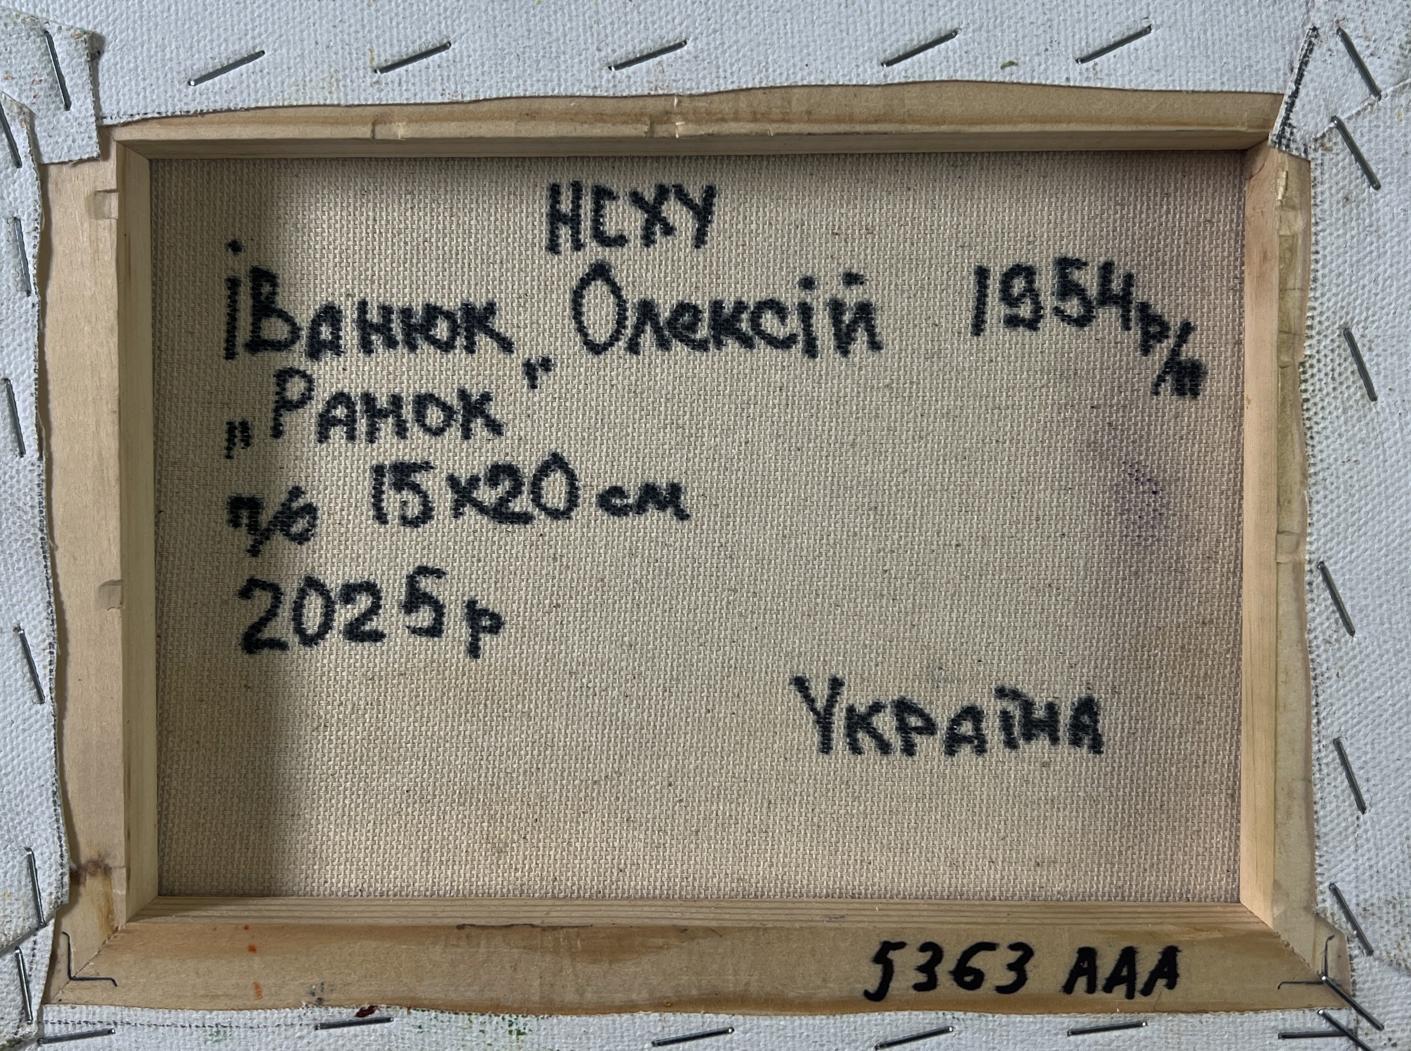 НСХУ
Іванюк Олексій 1954 р/н
„Ранок"
п/о 15x20 см
2025 р
Україна
5363 AAA